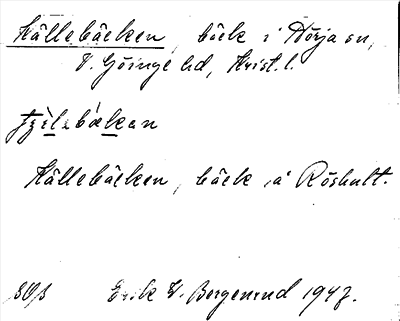 Källebäcken, bäck i Hörja sn,
V. Göinge hd, Krist. l.
Källebäcken, bäck å Röshult.
Erik W. Bergenrud 1947.